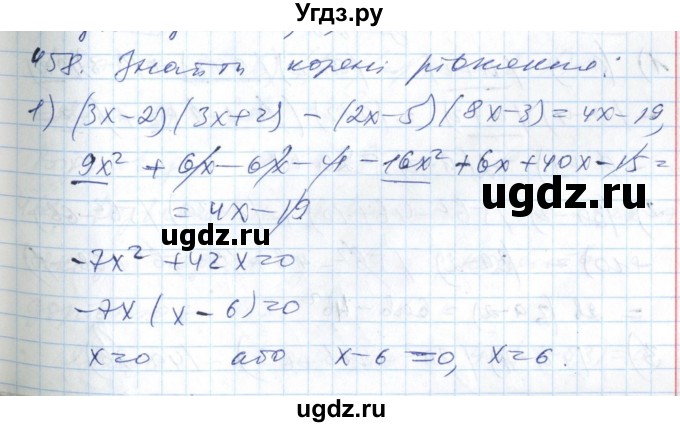 Угдз.ру
458. Знайти корені рівняння:
1) (3x-2)(3x+2) - (2x-5)(8x-3) = 4x-19,
9x² + 6x - 6x - 4 - 16x² + 6x + 40x - 15 =
= 4x - 19
ugdz.ru
ugdz.ru
-7x² + 42x = 0
-7x(x - 6) = 0
x = 0 або x - 6 = 0, x = 6.
ugdz.ru